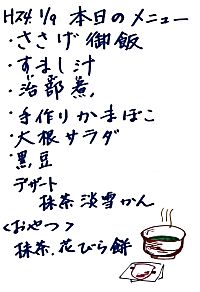 H24 1/9 本日のメニュー
・ささげ御飯
・すまし汁
・治部煮
・手作りかまぼこ
・大根サラダ
・黒豆
デザート
抹茶淡雪かん
<おやつ>
抹茶.花びら餅